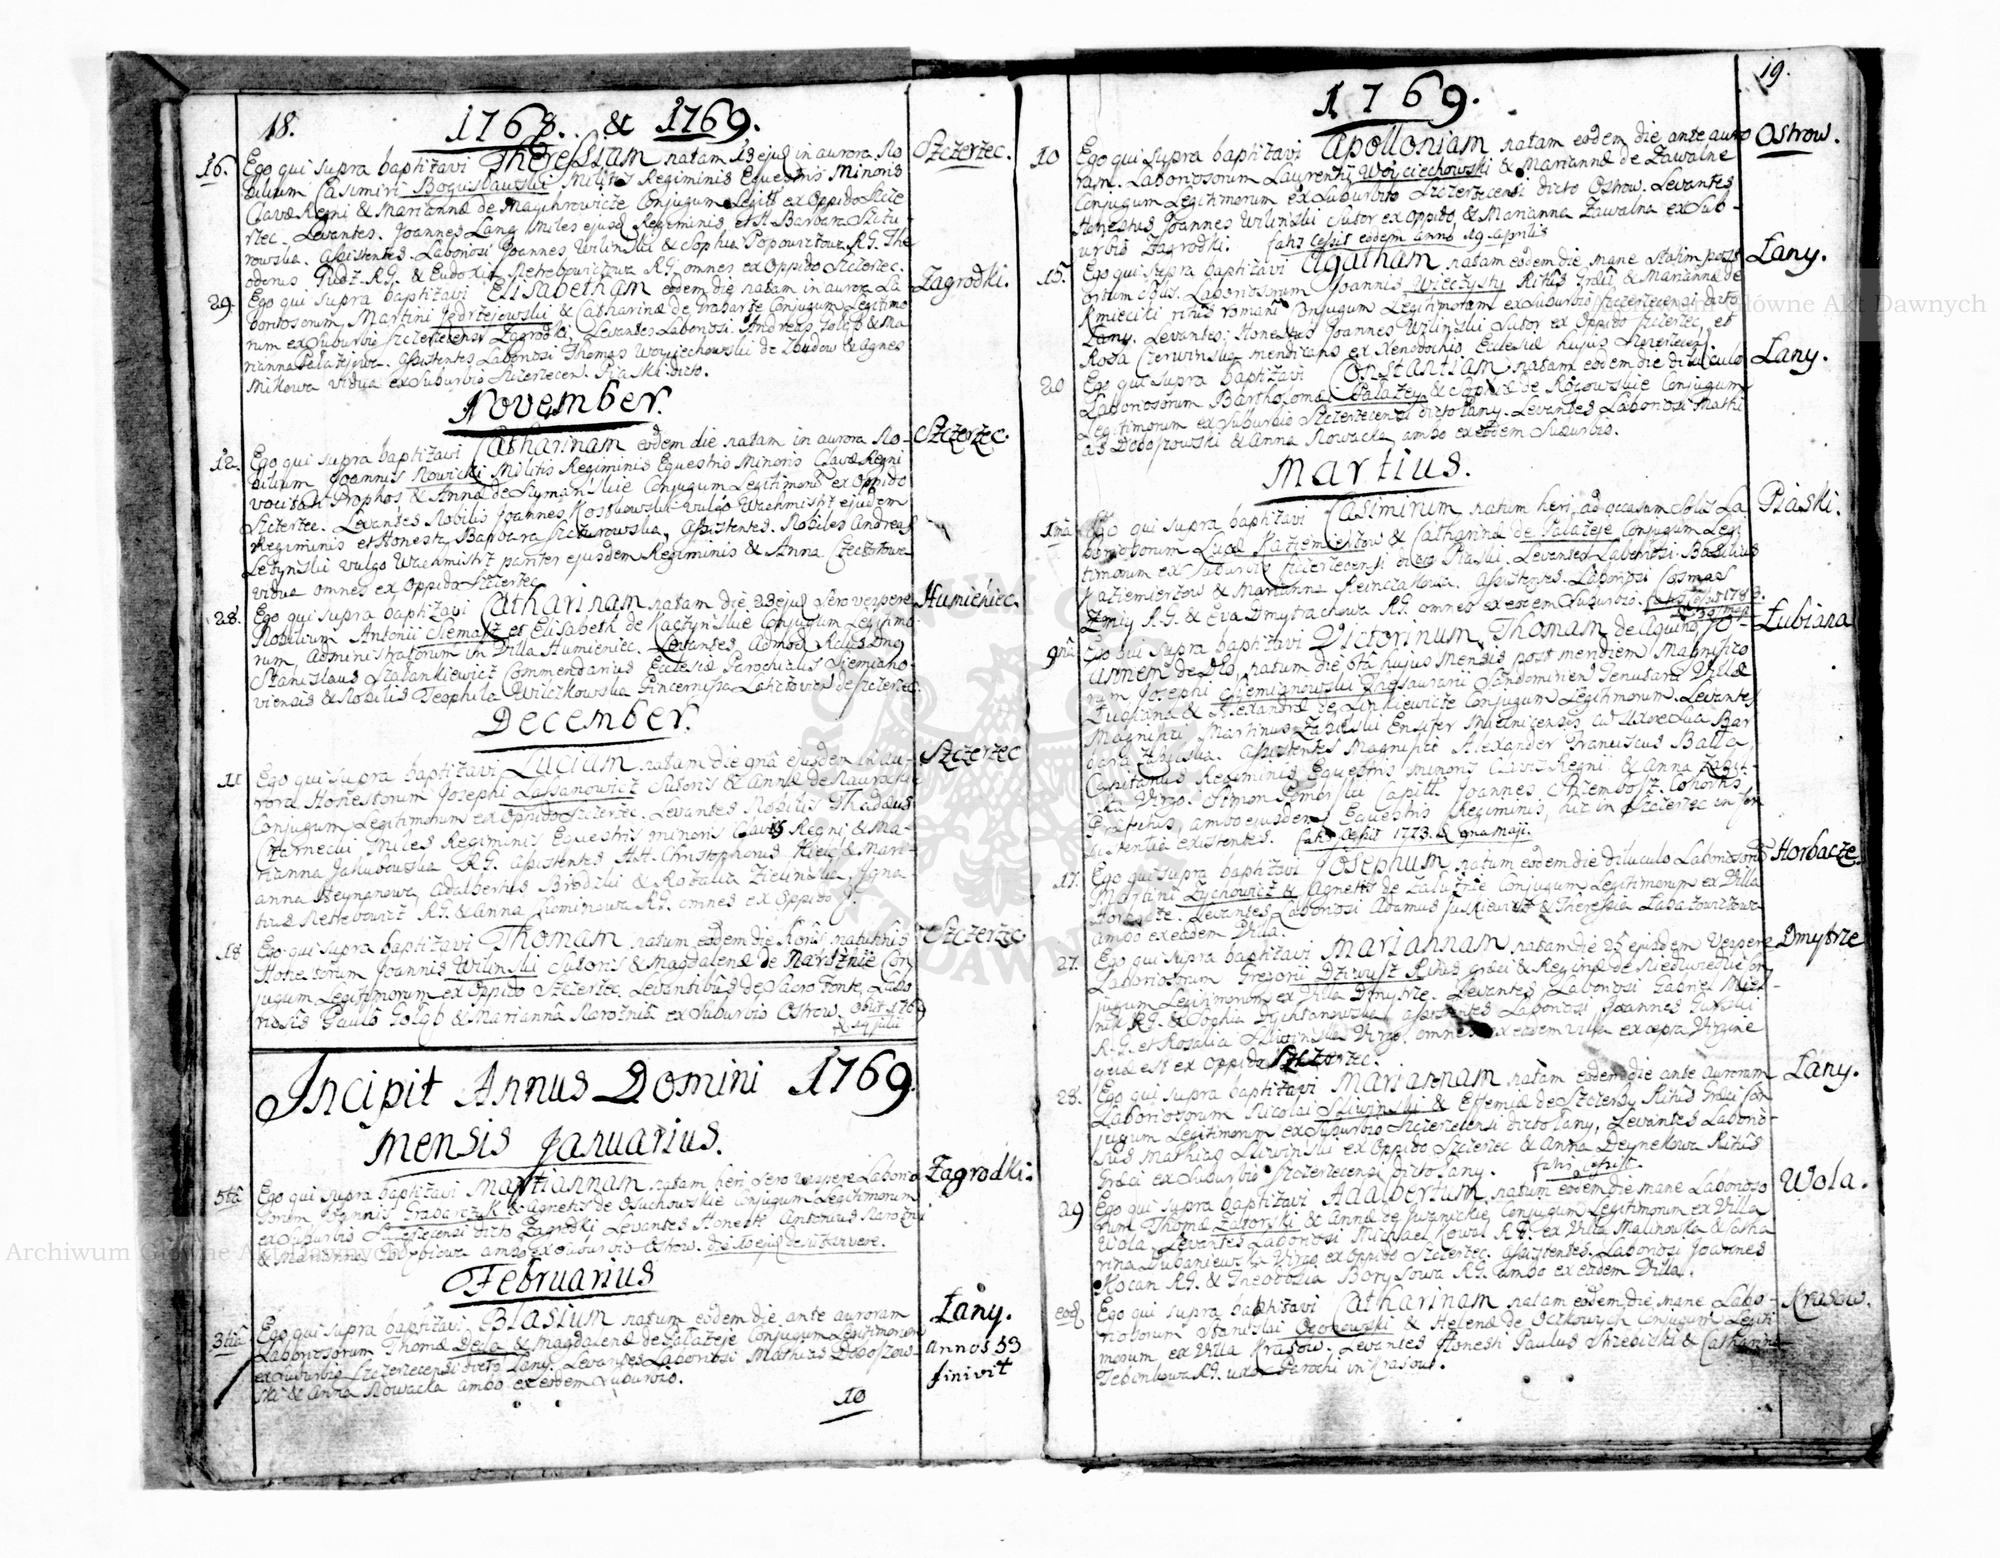 18.
1768. & 1769.
16. Ego qui supra baptizavi Theressiam natam 13 ejus in aurora No- Szczerzec.
bilium Casimiri Boguslawski Militis Regiminis Equestris Minoris
Clavæ Regni & Mariannæ de Conjugum Legitt ex Oppido Szcze
rzec. Levantes. Joannes Lang Miles ejusd Regiminis et H. Barbara Scztu-
rowska. Assistentes. Laboriosi Joannes Wilinski & Sophia Popowiczowa R.G. The
odorus R.G. & Eudoxia Netrebowiczowa R.G. omnes ex Oppido Szczerzec.
29. Ego qui supra baptizavi Elisabetham eodem die natam in aurora La- Zagrodki.
boriosorum Martini Jędrzejewski & Catharinæ de Grabarze Conjugum Legitimo
rum ex Suburbio Szczerzecensi Zagrodki, Levantes Laboriosi Andreas & Ma
rianna Assistentes Laboriosi Thomas Woyciechowski de & Agnes
Mikowa vidua ex Suburbio Szczerzecen. Piaski dicto.
November.
12. Ego qui supra baptizavi Catharinam eodem die natam in aurora No- Szczerzec.
bilium Joannis Nowicki Militis Regiminis Equestris Minoris Clavæ Regni
vocitati Prophos & Annæ de Szymańskie Conjugum Legitimorum ex Oppido
Szczerzec. Levantes Nobilis Joannes Kosskowski vulgo Wachmistrz ejusdem
Regiminis et Honesta Barbara Szczurowska, Assistentes. Nobiles Andreas
Leżynski vulgo Wachmistrz pariter ejusdem Regiminis & Anna
vidua omnes ex Oppido Szczerzec.
28. Ego qui supra baptizavi Catharinam natam die 23 ejus sero vespere Humieniec.
Nobilium Antonii Siemasz et Elisabeth de Kaczynskie Conjugum Legitimo
rum, Administratorum in Villa Humieniec. Levantes Admod Rndus Dnus
Stanislaus Szalankiewicz Commendarius Ecclesiæ Parochialis Siemiano-
viensis & Nobilis Teophila Wilczkowska Pincernissa de Szczerzec.
December.
11 Ego qui supra baptizavi Luciam natam die 9nâ ejusdem in au- Szczerzec
rora Honestorum Josephi Lassanowicz Sutoris & Annæ de
Conjugum Legitimorum ex Oppido Szczerzec. Levantes Nobilis Thadæus
Czarnecki Miles Regiminis Equestris minoris Clavis Regni & Ma-
rianna Jakubowska R.G. Assistentes H.H. Christophorus & Mari-
anna Heymanowa, Adalbertus Brodzki & Rozalia Zielinska, Igna-
tius Netrebowicz R.G. & Anna R.G. omnes ex Oppido
18 Ego qui supra baptizavi Thomam natum eodem die horis matutinis Szczerzec
Honestorum Joannis Wilinski Sutoris & Magdalenæ de Naroznie Con
jugum Legitimorum ex Oppido Szczerzec. Levantibus de Sacro Fonte, Labo
riosis Paulo Gołąb & Marianna Narożnia ex Suburbio Ostrow. obiit 1769
14 julii
Incipit Annus Domini 1769.
Mensis Januarius.
5tâ Ego qui supra baptizavi Martiannam natam heri sero vespere Laborio Zagrodki.
sorum Joannis Grabarczyk & Agnetis de Osuchowskie Conjugum Legitimorum
ex Suburbio Szczerzecensi dicto Zagrodki Levantes Honesti Antonius Narozni
& Marianna ambo ex Suburbio Ostrow. die
Februarius
3tiâ Ego qui supra baptizavi Blasium natum eodem die ante auroram Łany.
Laboriosorum Thomæ Deda & Magdalenæ de Pałażeje Conjugum Legitimorum annos 53
ex Suburbio Szczerzecensi dicto Łany. Levantes Laboriosi Mathias Doboszow- finivit
ski & Anna Nowacka ambo ex eodem Suburbio.
10
19.
1769.
10 Ego qui supra baptizavi Apolloniam natam eodem die ante auro Ostrow.
ram. Laboriosorum Laurentii Woyciechowski & Mariannæ de Zawalne
Conjugum Legitimorum ex Suburbio Szczerzecensi dicto Ostrow. Levantes
Honestus Joannes Wilinski Sutor ex Oppido & Marianna Zawalna ex Sub-
urbio Zagrodki. fatis cessit eodem anno 19 Aprilis
15. Ego qui supra baptizavi Agatham natam eodem die mane statim post Łany.
ortum solis. Laboriosorum Joannis Wieczysty Ritus Græci & Mariannæ de
Kmieciki ritus romani Conjugum Legitimorum ex Suburbio Szczerzecensi dicto
Łany. Levantes; Honestus Joannes Wilinski Sutor ex Oppido Szczerzec, et
Rosa Czerwinska mendicans ex Xenodochio Ecclesiæ hujus Szczerzecen.
20 Ego qui supra baptizavi Constantiam natam eodem die diluculo Łany.
Laboriosorum Bartholomæi Pałażey & Sophiæ de Rogowskie Conjugum
Legitimorum ex Suburbio Szczerzecensi dicto Łany. Levantes Laboriosi Mathi
as Doboszowski & Anna Nowacka ambo ex eodem Suburbio.
Martius.
1mâ Ego qui supra baptizavi Casimirum natum heri ad occasum Solis La Piaski.
boriosorum Lucæ Kazimierzow & Catharinæ de Pałażeje Conjugum Legi
timorum ex Suburbio Szczerzecensi dicto Piaski. Levantes Laboriosi Basilius
Kazimierzow & Marianna Reinczakowa. Assistentes. Laboriosi Cosmas
Żmiy R.G. & Eva Dmytrachowa R.G. omnes ex eodem Suburbio. fatis cessit 1783.
9nâ Ego qui supra baptizavi Victorinum, Thomam de Aquino, Jo- Łubiana
annem de Deo, natum die 6ta hujus mensis post meridiem Magnifico
rum Josephi Siemianowski Thesaurarii Sandomirien Tenutarii Villæ
Łubiana & Alexandræ de Linkiewicze Conjugum Legitimorum. Levantes
Magnifici Martinus Zabielski Ensifer Mielnicensis cu Uxore sua Bar
bara Zabielska. Assistentes Magnifici Alexander Franciscus Balla,
Capitanus Regiminis Equestris minoris Clavis Regni & Anna
Virgo. Simon Pomorski Capitt Joannes Chizembosz. Cohortis
Præfectus, ambo ejusdem Equestris Regiminis, hic in Szczerzec in
sistentiâ existentes. fatis cessit 1773. 9na maji.
17. Ego qui supra baptizavi Josephum natum eodem die Diluculo Laboriosoru Horbacze.
Martini Zychowicz & Agnetis de Zaluznie Conjugum Legitimorum ex Villa
Horbacze. Levantes Laboriosi Adamus Juskiewicz & Theressia
ambo ex eadem Villa.
27. Ego qui supra baptizavi Mariannam natam die 25 ejusdem Vespere Dmytrze
Laboriosorum Gregorii Dziwusz Ritus Græci & Reginæ de Con
jugum Legitimorum ex Villa Dmytrze. Levantes Laboriosi Gabriel
R.G. & Sophia assistentes Laboriosi Joannes
R.G. et Rosalia Sliwinska Virgo, omnes ex eadem Villa excepta Virgine
quæ est ex Oppido Szczerzec.
28. Ego qui supra baptizavi Mariannam natam eodem die ante auroram Łany.
Laboriosorum Nicolai Sliwinski & Effemiæ de Szczerby Ritus Græci Con
jugum Legitimorum ex Suburbio Szczerzecensi dicto Łany, Levantes Laborio
sus Mathias Sliwinski ex Oppido Szczerzec & Anna Deynekowa Ritus
Græci ex Suburbio Szczerzecensi dicto Łany. fatis cessit.
29 Ego qui supra baptizavi Adalbertum natum eodem die mane Laborioso Wola.
rum Thomæ Zaborski & Annæ de Conjugum Legitimorum ex Villa
Wola, Levantes Laboriosi Michael Kowal R.G. ex Villa Malinowka & Catha
rina Virgo ex Oppido Szczerzec. Assistentes. Laboriosi Joannes
Kocan R.G. & Theodozia Borysowa R.G. ambo ex eadem Villa.
eod. Ego qui supra baptizavi Catharinam natam eodem die mane Labo- Krasow.
riosorum Stanislai & Helenæ de Conjugum Legiti
morum ex Villa Krasow. Levantes Honesti Paulus Strzebicki & Catharina
R.G. uxor Parochi in Krasow.
Archiwum Główne Akt Dawnych
Archiwum Główne Akt Dawnych